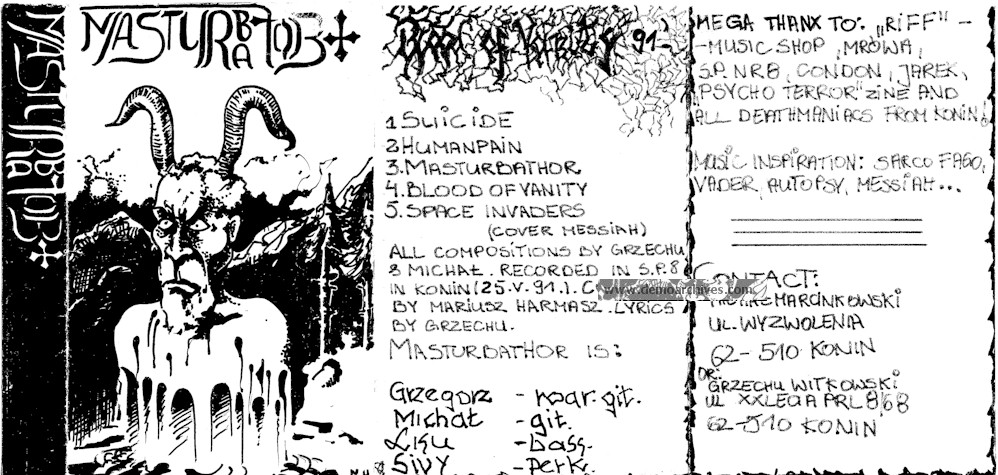 MASTURBATOR
MASTURBATOR
Blood of Vanity 91
1 SUICIDE
2 HUMANPAIN
3. MASTURBATHOR
4. BLOOD OF VANITY
5. SPACE INVADERS
(COVER MESSIAH)
ALL COMPOSITIONS BY GRZECHU
& MICHAŁ. RECORDED IN S.P.8
IN KONIN (25.V.91.). C
www.demoarchives.com
BY MARIUSZ HARMASZ. LYRICS
BY GRZECHU.
MASTURBATHOR IS:
Grzegorz - war. git.
Michał - git.
Liku - bass.
Sivy - perk.
MEGA THANX TO: „RIFF" -
- MUSIC SHOP, MRÓWA,
S.P. NR 8, CONDON, JAREK,
"PSYCHO TERROR" ZINE AND
ALL DEATHMANIACS FROM KONIN!
MUSIC INSPIRATION: SARCOFAGO,
VADER, AUTOPSY, MESSIAH...
CONTACT:
MARCINKOWSKI
UL. WYZWOLENIA
62-510 KONIN
OR:
GRZECHU WITKOWSKI
UL XXLECIA PRL 8/68
62-510 KONIN